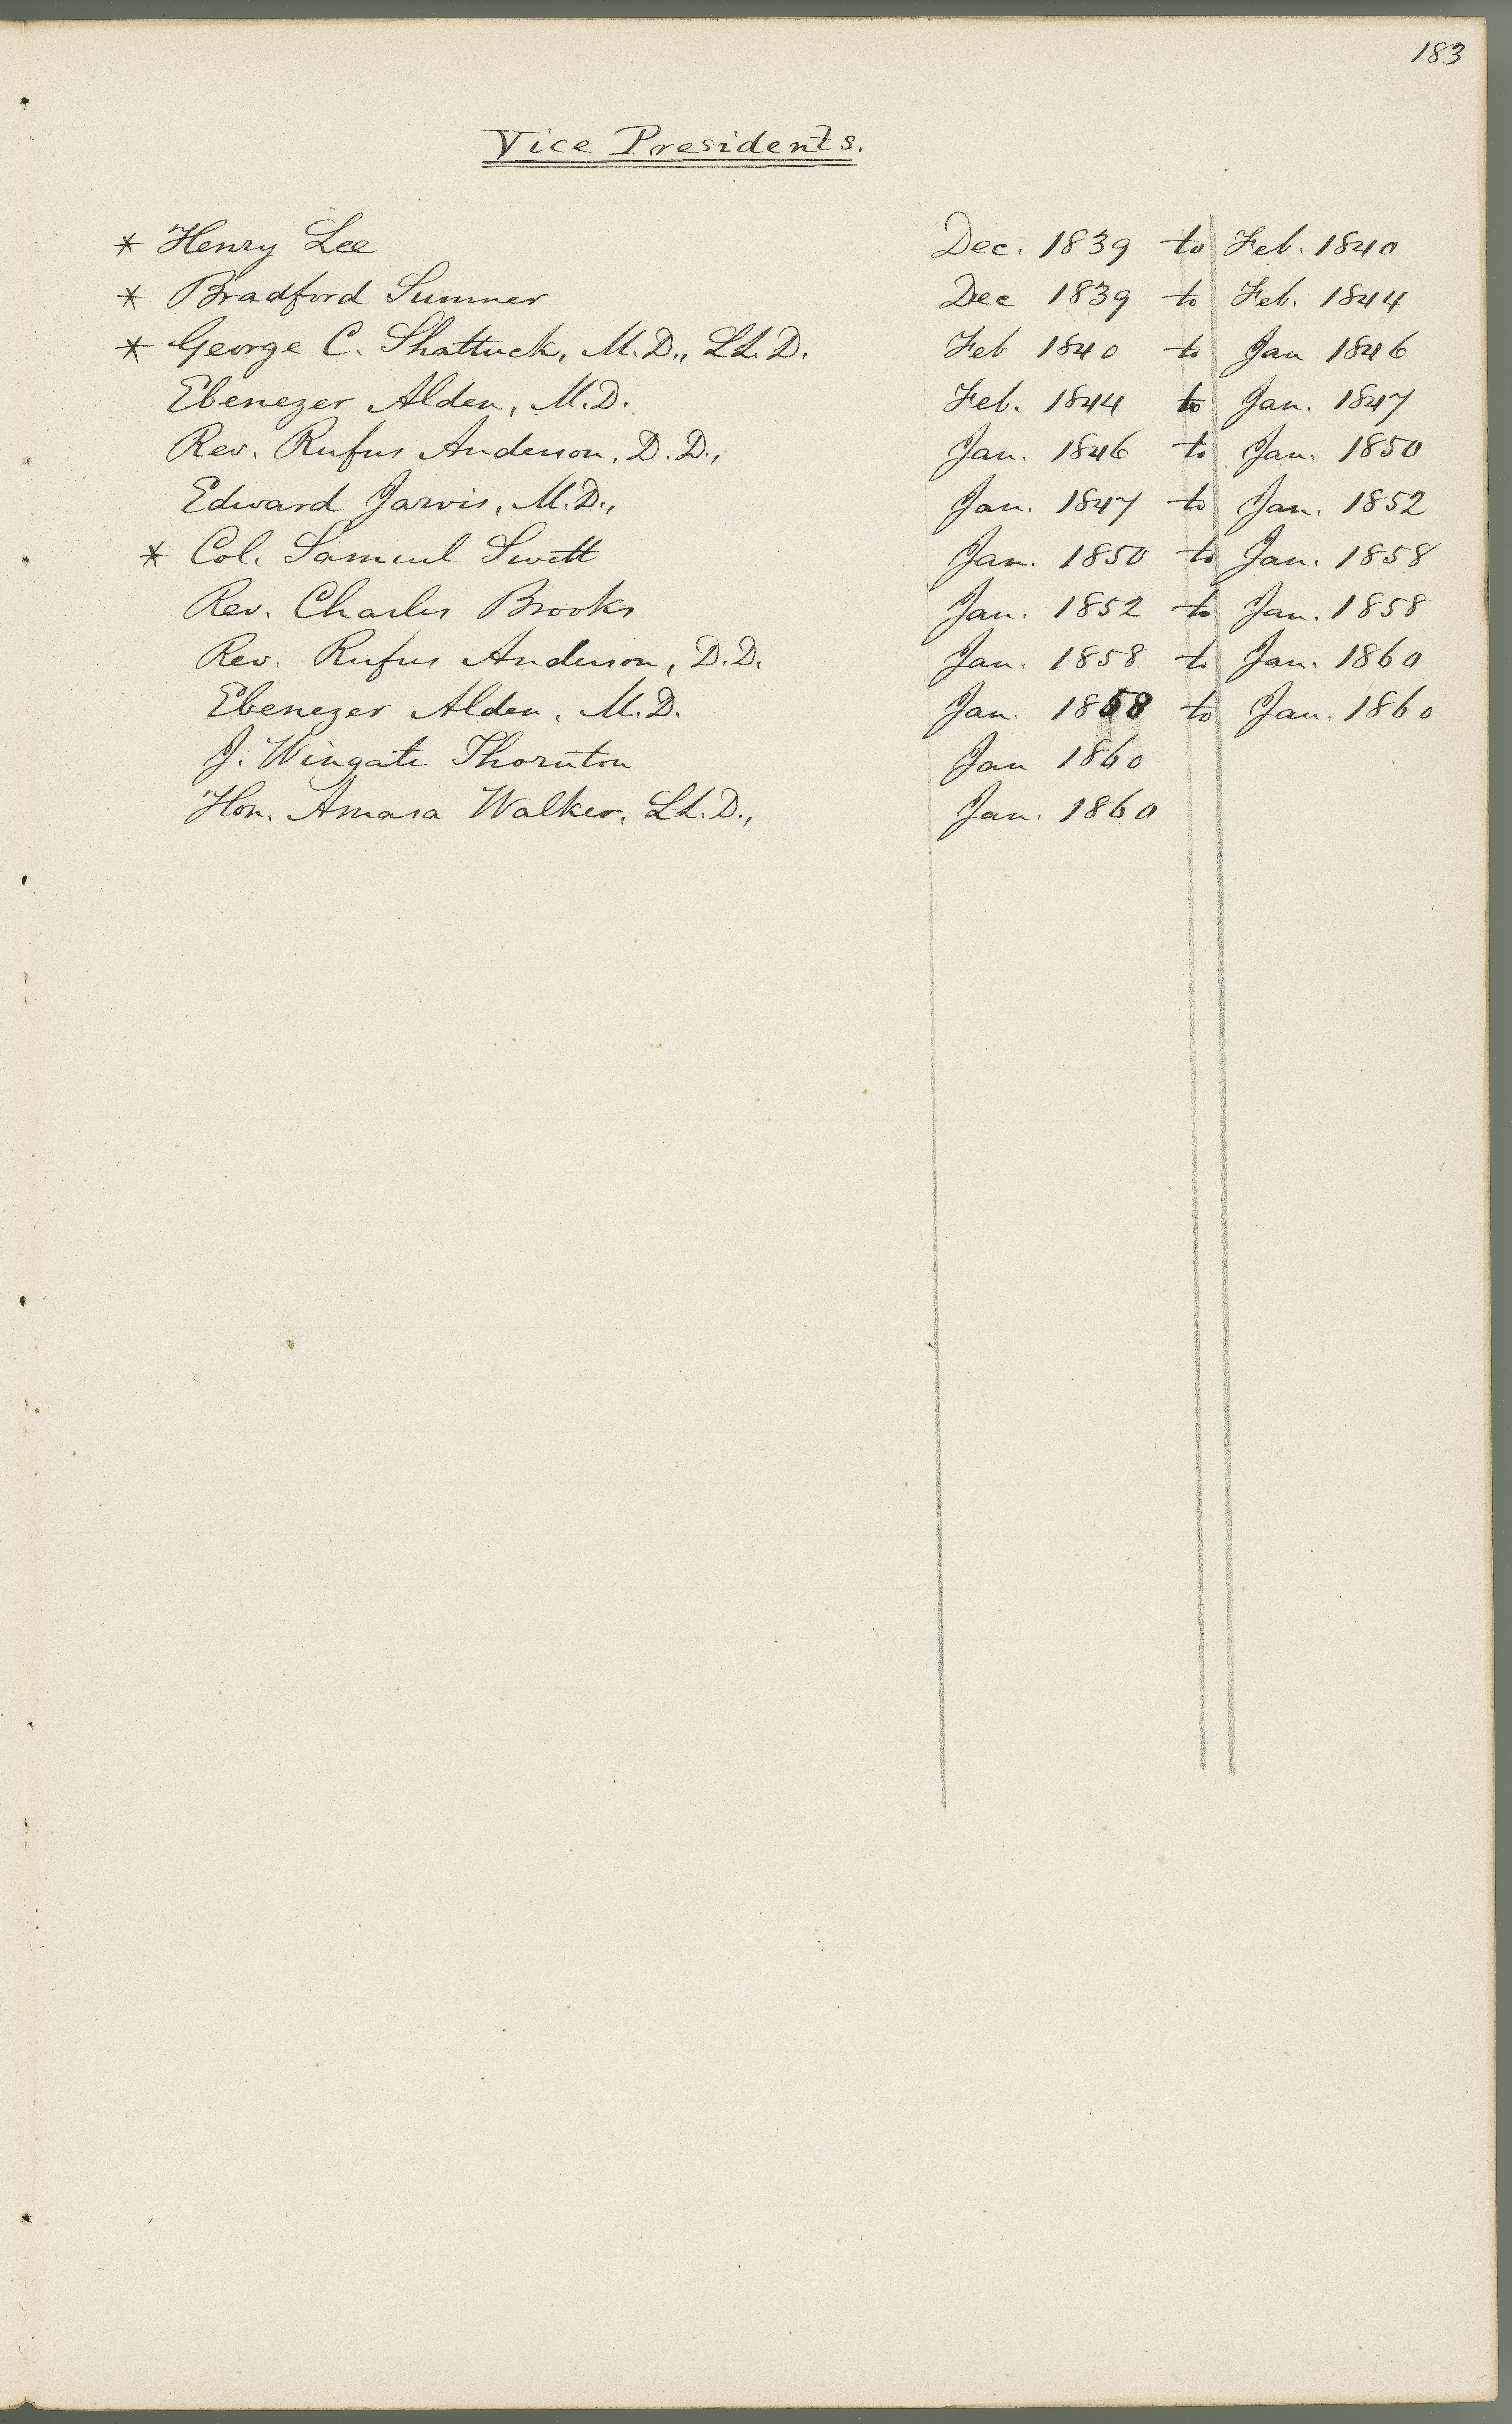 183
Vice Presidents.
* Henry Lee Dec. 1839 to Feb. 1840
* Bradford Sumner Dec 1839 to Feb. 1844
* George C. Shattuck, M.D., LL.D. Feb 1840 to Jan 1846
Ebenezer Alden, M.D. Feb. 1844 to Jan. 1847
Rev. Rufus Anderson, D.D., Jan. 1846 to Jan. 1850
Edward Jarvis, M.D., Jan. 1847 to Jan. 1852
* Col. Samuel Swett Jan. 1850 to Jan. 1858
Rev. Charles Brooks Jan. 1852 to Jan. 1858
Rev. Rufus Anderson, D.D. Jan. 1858 to Jan. 1860
Ebenezer Alden, M.D. Jan. 1858 to Jan. 1860
J. Wingate Thornton Jan 1860
Hon. Amasa Walker, LL.D., Jan. 1860